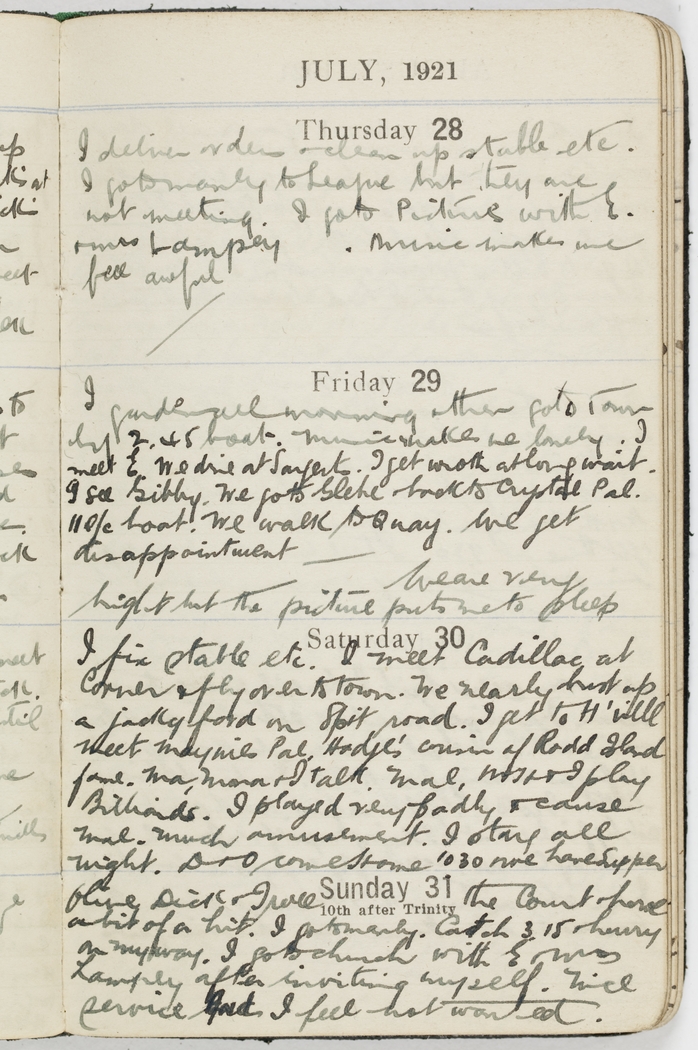 JULY, 1921
Thursday 28
I deliver orders & clean up stable etc.
I go to manly to League but they are
not meeting. I go to Pictures with E.
& mrs Lampey. Music makes me
feel awful
Friday 29
I garden all morning & then go to Town
by 2.45 boat. Music makes me lonely. I
meet E. We dine at Sargents. I get wroth at long wait.
I see Gibby. We go to Glebe & back to Crystal Pal.
11 o/c boat. We walk to Quay. We get
disappointment
We are very
bright but the picture puts me to sleep
Saturday 30
I fix stable etc. I meet Cadillac at
Corner & fly over to town. We nearly bust up
a jacky ford on Spit road. I get to H'ville
meet Maynies Pal, Hodge's cousin of Rodd Island
fame. Ma, Mona & I talk. Mal, & I play
Billiards. I played very badly & cause
Mal. much amusement. I stay all
night. D & O come home 1030 & we have Supper
Sunday 31
10th after Trinity
Olive, Dick & I roll the Court & have
a bit of a hit. I go to manly. Catch 3.15 & hurry
on my way. I go to church with E & mrs
Lampey after inviting myself. Nice
service but I feel not wanted.